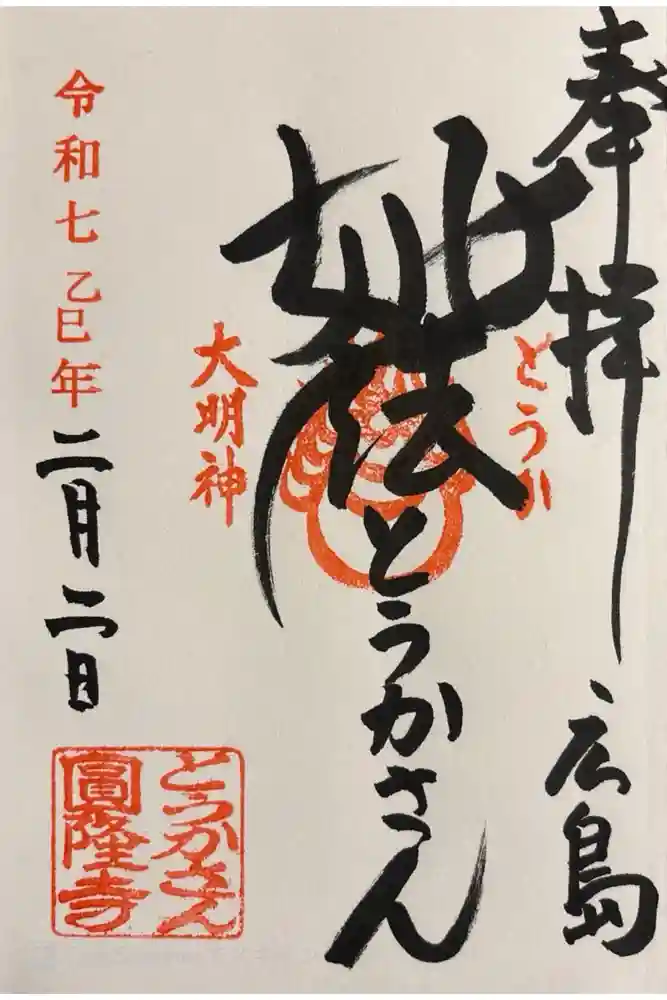 奉拝
広島
とうか
妙法
とうかさん
大明神
令和七乙巳年二月二日
とうかさん
圓隆寺